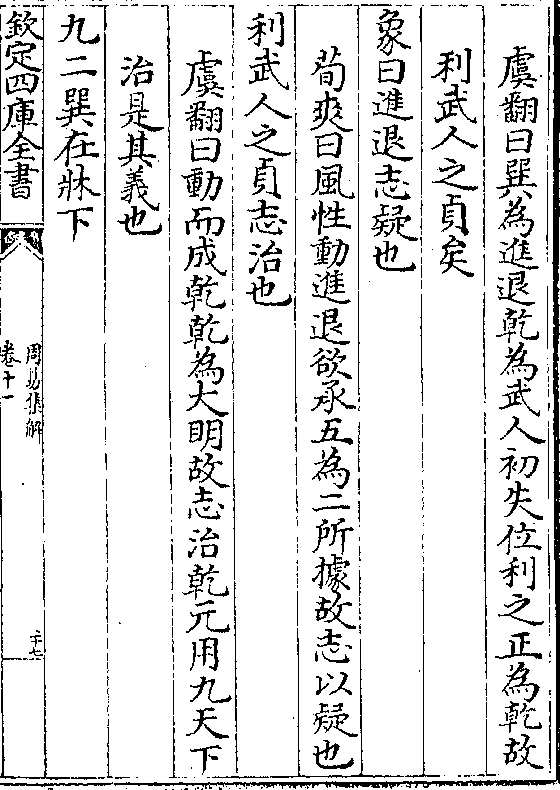 虞翻曰巽為進退乾為武人初失位利之正為乾故
利武人之貞矣
象曰進退志疑也
荀爽曰風性動進退欲承五為二所據故志以疑也
利武人之貞志治也
虞翻曰動而成乾乾為大明故志治乾元用九天下
治是其義也
九二巽在牀下
欽定四庫全書
周易集解
卷十一
二十七